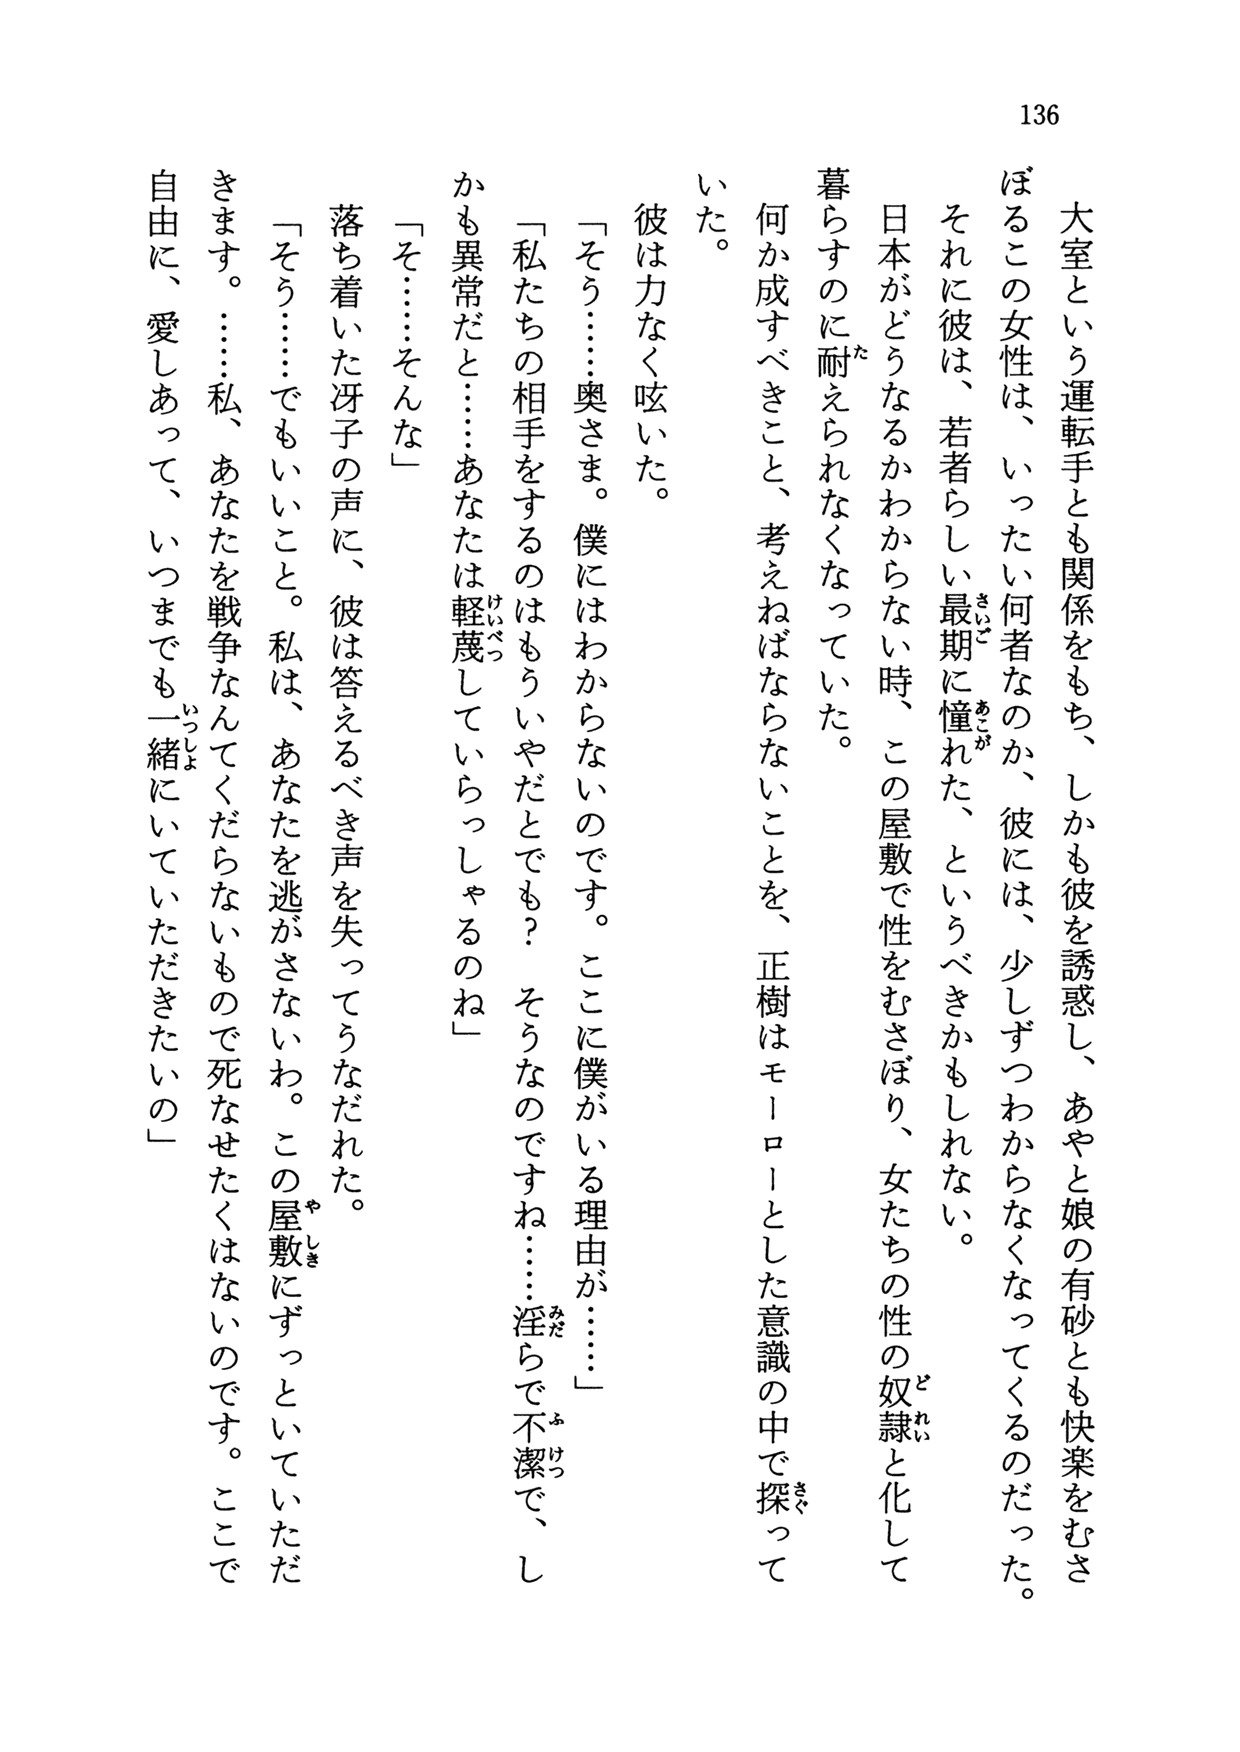 136
大室という運転手とも関係をもち、しかも彼を誘惑し、あやと娘の有砂とも快楽をむさ
ぼるこの女性は、いったい何者なのか、彼には、少しずつわからなくなってくるのだった。
それに彼は、若者らしい最期に憧れた、というべきかもしれない。
日本がどうなるかわからない時、この屋敷で性をむさぼり、女たちの性の奴隷と化して
暮らすのに耐えられなくなっていた。
何か成すべきこと、考えねばならないことを、正樹はモーローとした意識の中で探って
いた。
彼は力なく呟いた。
「そう……奥さま。僕にはわからないのです。ここに僕がいる理由が……」
「私たちの相手をするのはもういやだとでも？　そうなのですね……淫らで不潔で、し
かも異常だと……あなたは軽蔑していらっしゃるのね」
「そ……そんな」
落ち着いた冴子の声に、彼は答えるべき声を失ってうなだれた。
「そう……でもいいこと。私は、あなたを逃がさないわ。この屋敷にずっといていただ
きます。……私、あなたを戦争なんてくだらないもので死なせたくはないのです。ここで
自由に、愛しあって、いつまでも一緒にいていただきたいの」